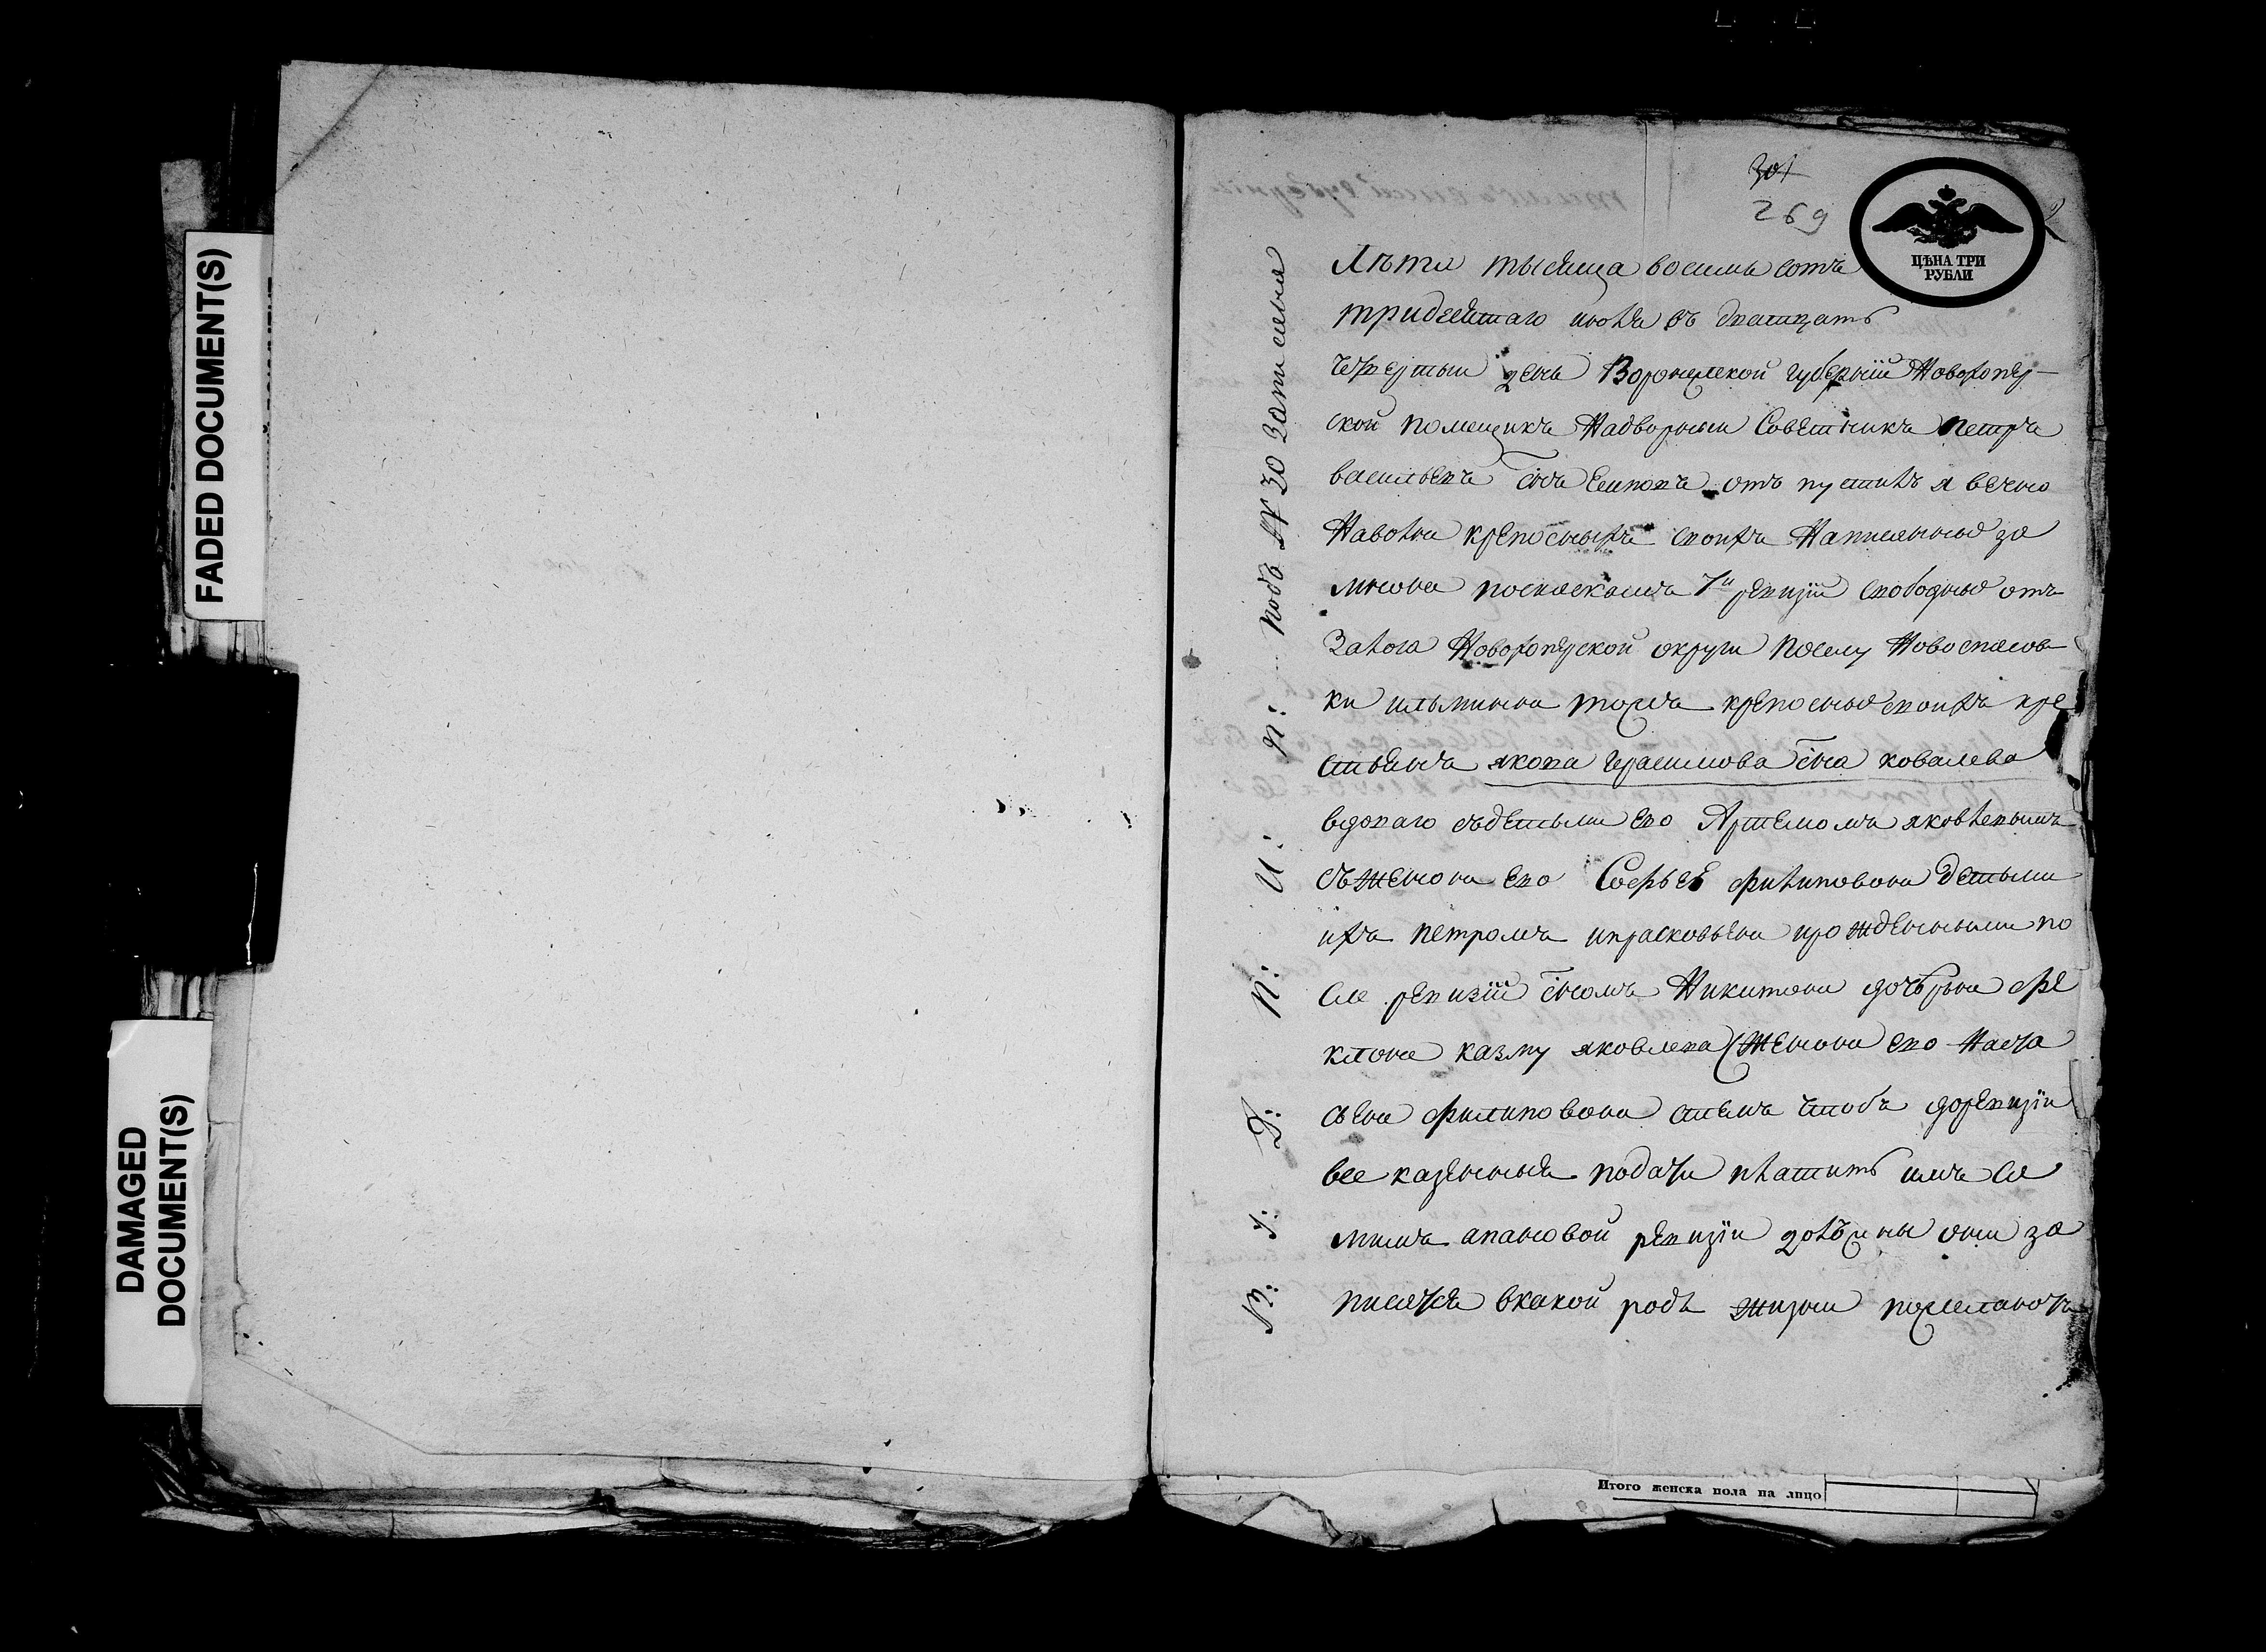 FADED DOCUMENT(S)
DAMAGED
DOCUMENT(S)
301
269
ЦѢНА ТРИ
РУБЛИ
Лѣта тысяща восемь сотъ
тридсятаго июля въ дватцать
четвертыи день Воронежской губернiи Новохопер-
ской помещикъ Надворныи Советникъ Петръ
васильевъ сынъ отъ пустилъ я вечно
Наволю крепосныхъ своихъ Написанные за
мною посказкамъ 7й ревизiи свободные отъ
Залога Новохоперской округи поселу Новоспасов
ки имъ крепосные своихъ кре
стьянъ якова герасимова сына ковалева
вдоваго съдетьми ево Артемомъ яковлевымъ
съженою ево Софьею филиповою детьми
ихъ петромъ ипрасковьею рожденными по
сле ревизiи сыномъ Никитою дочерью Фе
клою казму яковлева женою ево Наста
сьею филиповою стемъ чтобъ доревизiи
все казенныя подати платить имъ са
мимъ апановой ревизiи должны они за
писатся вкакой родъ жизни пожелаютъ
подъ № 30 Записана
Итого женска пола на лицо